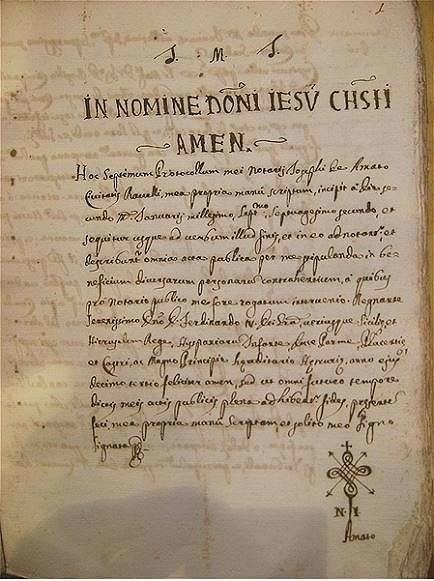 1
J. M. J.
IN NOMINE DOM̄NI IESV̄ CHS̄TI
AMEN.
Hoc Septimum Protocollum mei Notarij Josephi de Amato
Civitatis Ravelli, mea propria manu scriptum, incipit a die se
cundo mensis Januarij millesimo, septmo, septuagesimo secundo, et
sequitur usque ad versum illud finis, et in eo adnotantr, et
describuntr omnia acta publica per me stipulanda in be
neficium diversarum personarum contrahentium, a quibus
pro Notario publico me fore rogatum intervenio. Regnante
Serenissimo Dno D. Ferdinando IV. Dei Gratia, utriusque Siciliae, et
Hierusalem Rege, Hyspaniarum Infante, Duce Parmae, Placentiae
et Castri, ac Magno Principe hereditario Etruriae, anno ejus
decimo tertio feliciter amen, sed ut omni futuro tempore
dictis meis actis publicis plena adhibeatr fides, presente
feci, mea propria manu scriptam et solito meo signo
signata
N. I.
Amato